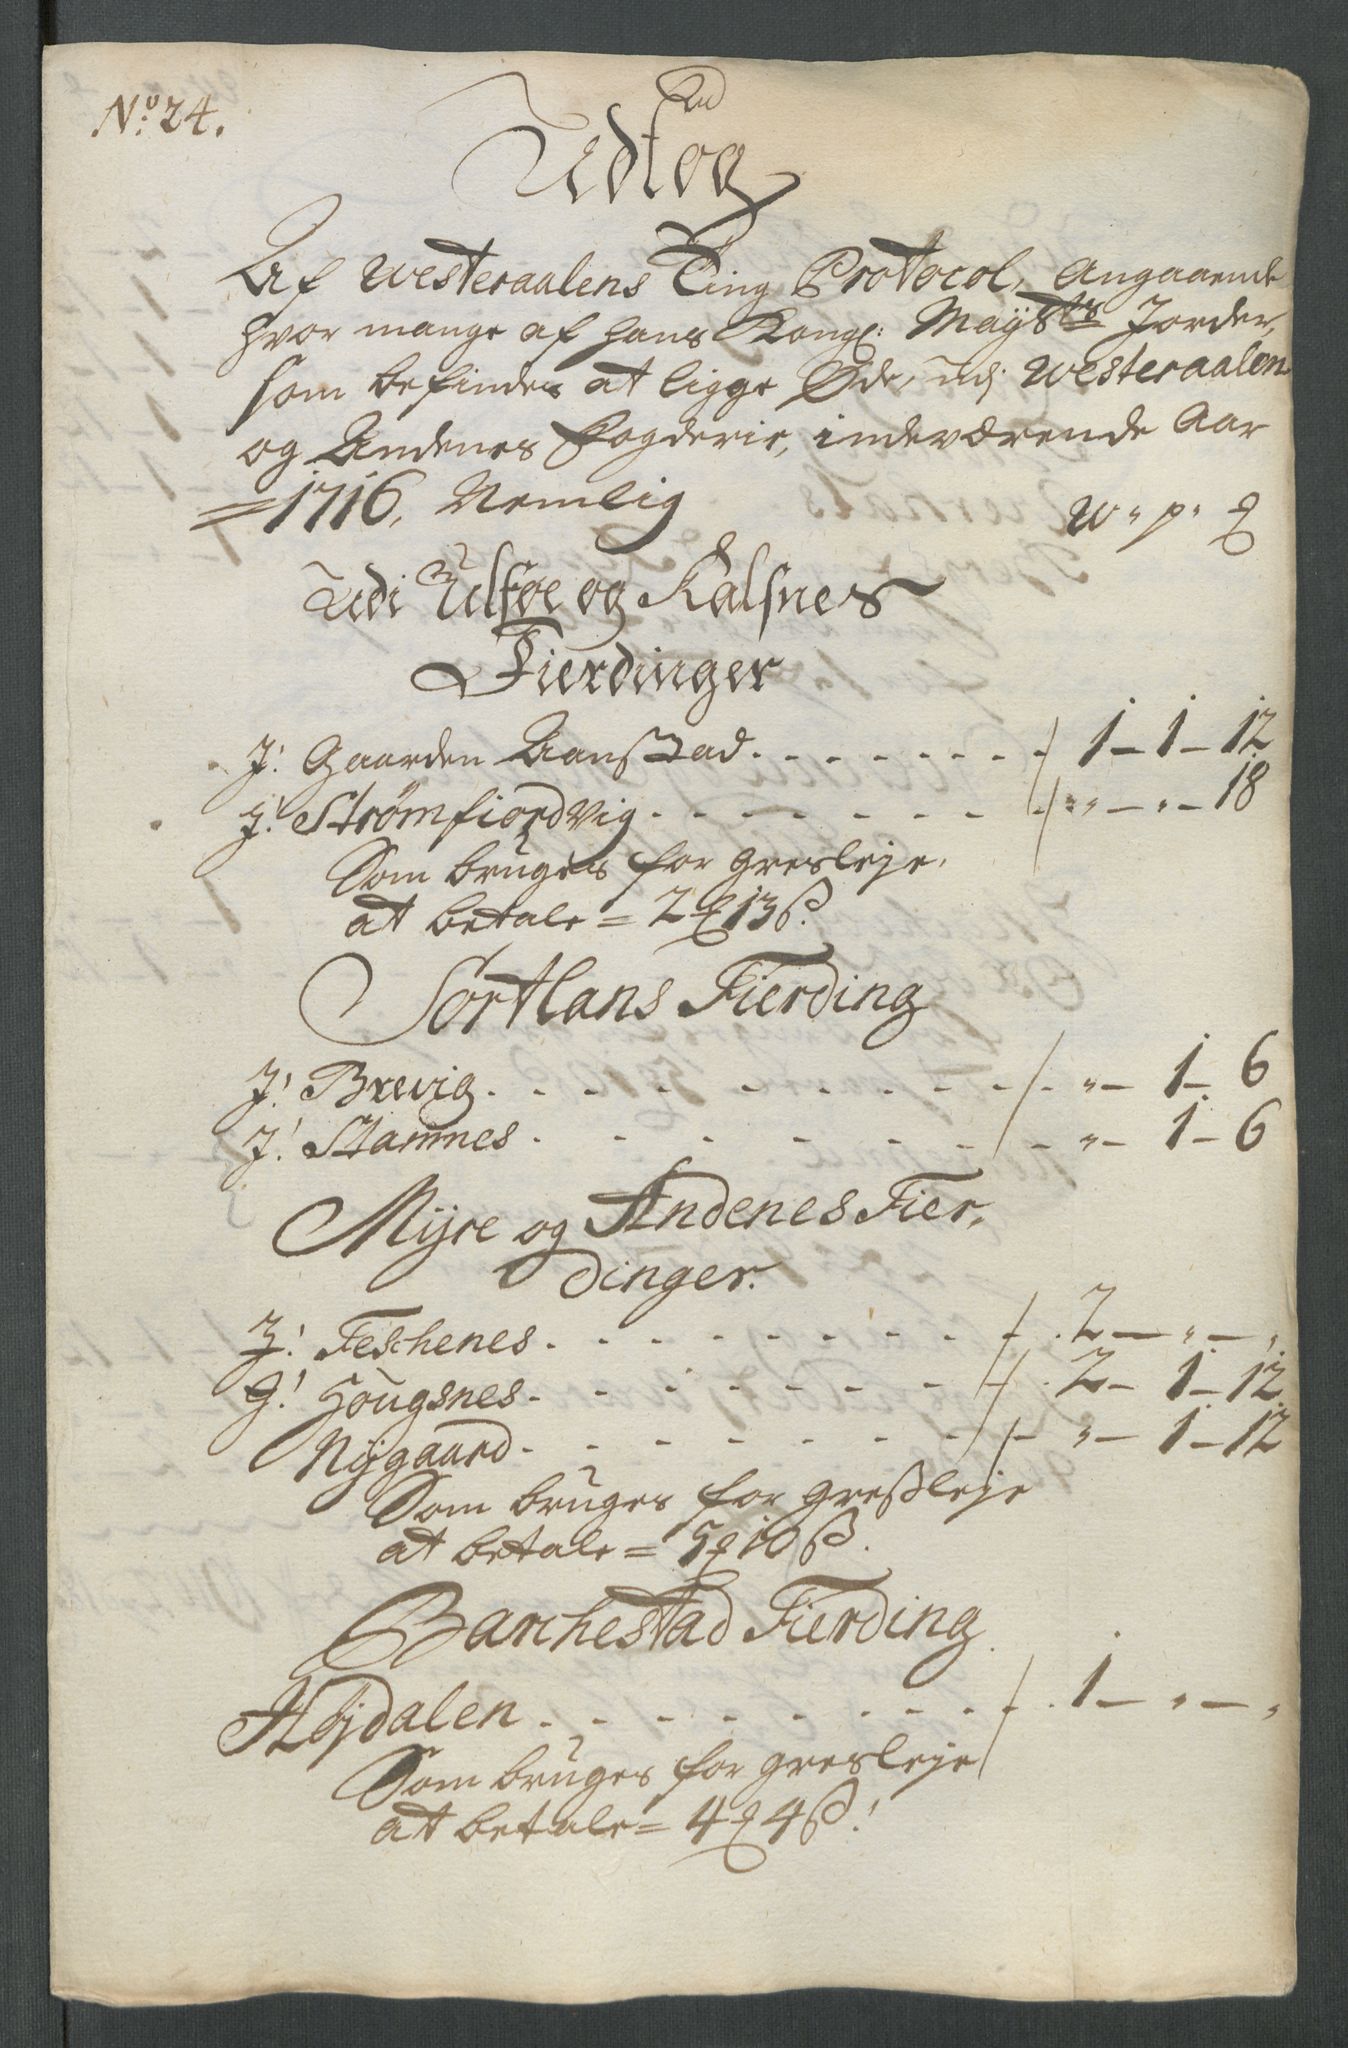 No: 24.
Udtog
Af Westeraalens Ting Protocol, Angaaende
hvor mange af hans Kongl: Mayst:s Jorder,
som befindes at ligge Øde, udj Westeraalen
og Andenes fogderie, indeværende Aar
=1716, Nemlig
W " p " 
Udi Ulføe og Kalsnes
Fierdinger
J! Gaarden Aanstad - - - - - - - - 1 - 1 - 12
J! Strømfiordvig - - - - - - - - " - " - 18
Som bruges for Gresleje,
at betale = 2 13 ß.
Sortlans Fierding
J! Brevig - - - - - - - - " - 1 - 6
J! Stamnes - - - - - - - - " - 1 - 6
Mijre og Andenes Fier,
dinger.
J! Feschenes - - - - - - - - 2 - " - "
G! Hougsnes - - - - - - - - 2 - 1 - 12
Nijgaard - - - - - - - - " - 1 - 12
Som bruges for Greßleje
at betale = 5 10 ß.
Barchestad Fierding
Højdalen - - - - - - - - 1 - " - "
Som bruges for gresleje
at betale = 4 4 ß!